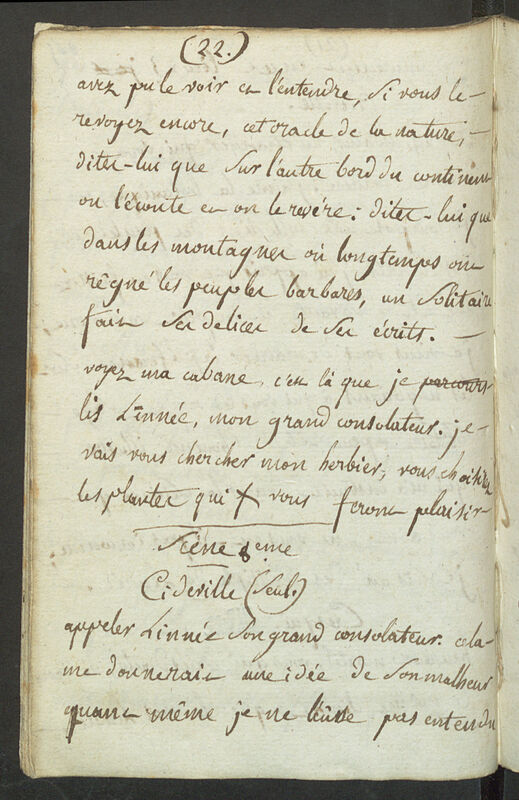 (22.)
avez pu le voir et l'entendre, si vous le
revoyez encore, cet oracle de la nature, -
dites-lui que sur l'autre bord du continent
on l'écoute et on le revére: dites-lui que
dans les montagnes où longtemps ont
régné les peuples barbares, un Solitaire
fait ses delices de ses écrits. -
voyez ma cabane, c'est là que je parcours
lis Linnée, mon grand consolateur. je-
vais vous chercher mon herbier, vous choisirez
les plantes qui vous feront plaisir-
Scène 8eme
Cideville (Seul.)
appeler Linnée son grand consolateur. cela-
me donnerait une idée de son malheur
quant même je ne l'eusse pas entendu